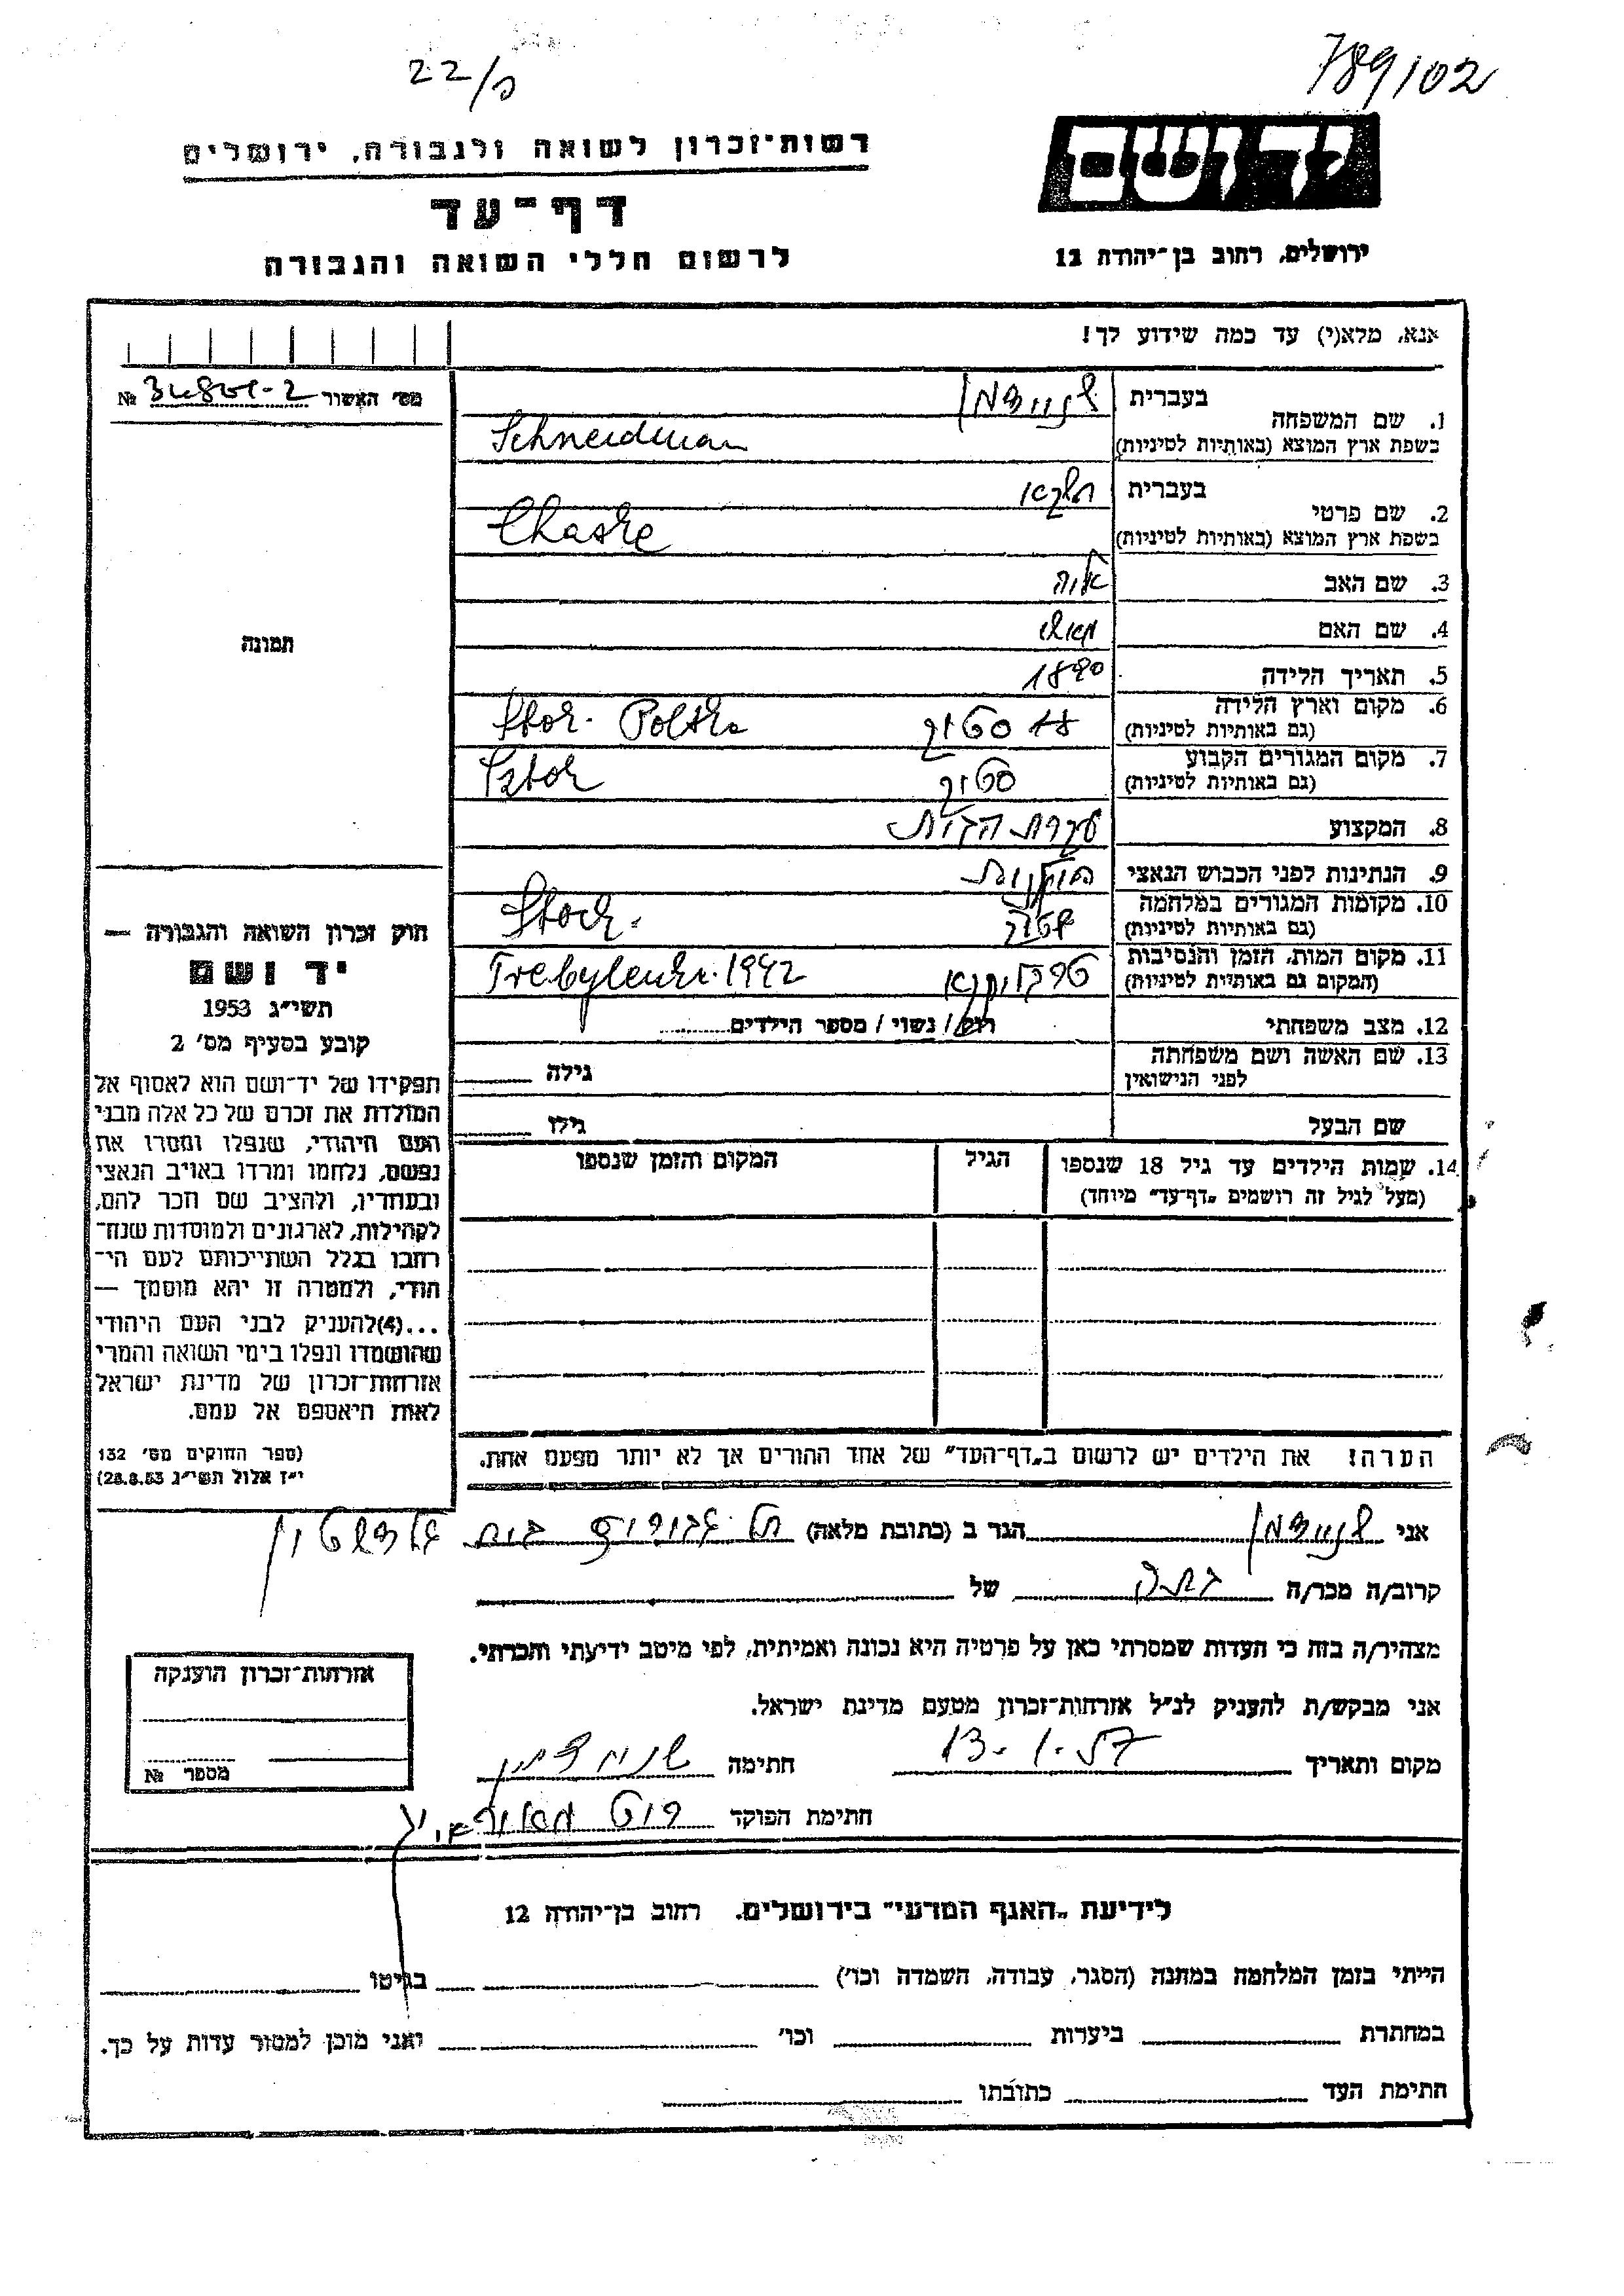 789102
22/פ
יד ושם
ירושלים, רחוב בן־יהודה 12
רשות־זכרון לשואה ולגבורה, ירושלים
דף־עד
לרשום חללי השואה והגבורה
אנא, מלא(י) עד כמה שידוע לך!
מס' האשור №
1. שם המשפחה
בעברית שניידמן
בשפת ארץ המוצא (באותיות לטיניות) Schneidman
2. שם פרטי
בעברית
בשפת ארץ המוצא (באותיות לטיניות) Chaske
3. שם האב
4. שם האם
5. תאריך הלידה 1890
6. מקום וארץ הלידה
(גם באותיות לטיניות) סטוק Stok. Polska
7. מקום המגורים הקבוע
(גם באותיות לטיניות) סטוק Sztok
8. המקצוע עקרת הבית
9. הנתינות לפני הכבוש הנאצי פולנית
10. מקומות המגורים במלחמה
(גם באותיות לטיניות) Stock.
11. מקום המות, הזמן והנסיבות
(המקום גם באותיות לטיניות) טרבלינקא 1942
12. מצב משפחתי רווק / נשוי / מספר הילדים
13. שם האשה ושם משפחתה
לפני הנישואין גילה
שם הבעל גילו
14. שמות הילדים עד גיל 18 שנספו הגיל המקום והזמן שנספו
(מעל לגיל זה רושמים „דף־עד" מיוחד)
הערה: את הילדים יש לרשום ב„דף־העד" של אחד ההורים אך לא יותר מפעם אחת.
תמונה
חוק זכרון השואה והגבורה —
יד ושם
תשי"ג 1953
קובע בסעיף מס' 2
תפקידו של יד־ושם הוא לאסוף אל
המולדת את זכרם של כל אלה מבני
העם היהודי, שנפלו ומסרו את
נפשם, נלחמו ומרדו באויב הנאצי
ובעוזריו, ולהציב שם וזכר להם,
לקהילות, לארגונים ולמוסדות שנח־
רבו בגלל השתייכותם לעם הי־
הודי, ולמטרה זו יהא מוסמך —
...(4)להעניק לבני העם היהודי
שהושמדו ונפלו בימי השואה והמרי
אזרחות־זכרון של מדינת ישראל
לאות היאספם אל עמם.
(ספר החוקים מס' 132
י"ז אלול תשי"ג 28.8.53)
אני שניידמן הגר ב (כתובת מלאה)
קרוב/ה מכר/ה של
מצהיר/ה בזה כי העדות שמסרתי כאן על פרטיה היא נכונה ואמיתית, לפי מיטב ידיעתי והכרתי.
אני מבקש/ת להעניק לנ"ל אזרחות־זכרון מטעם מדינת ישראל.
מקום ותאריך 13.1.57 חתימה שניידמן
חתימת הפוקד
אזרחות־זכרון הוענקה
מספר №
לידיעת „האגף המדעי" בירושלים. רחוב בן־יהודה 12
הייתי בזמן המלחמה במחנה (הסגר, עבודה, השמדה וכו') בגיטו
במחתרת ביערות וכו' ואני מוכן למסור עדות על כך.
חתימת העד כתובתו